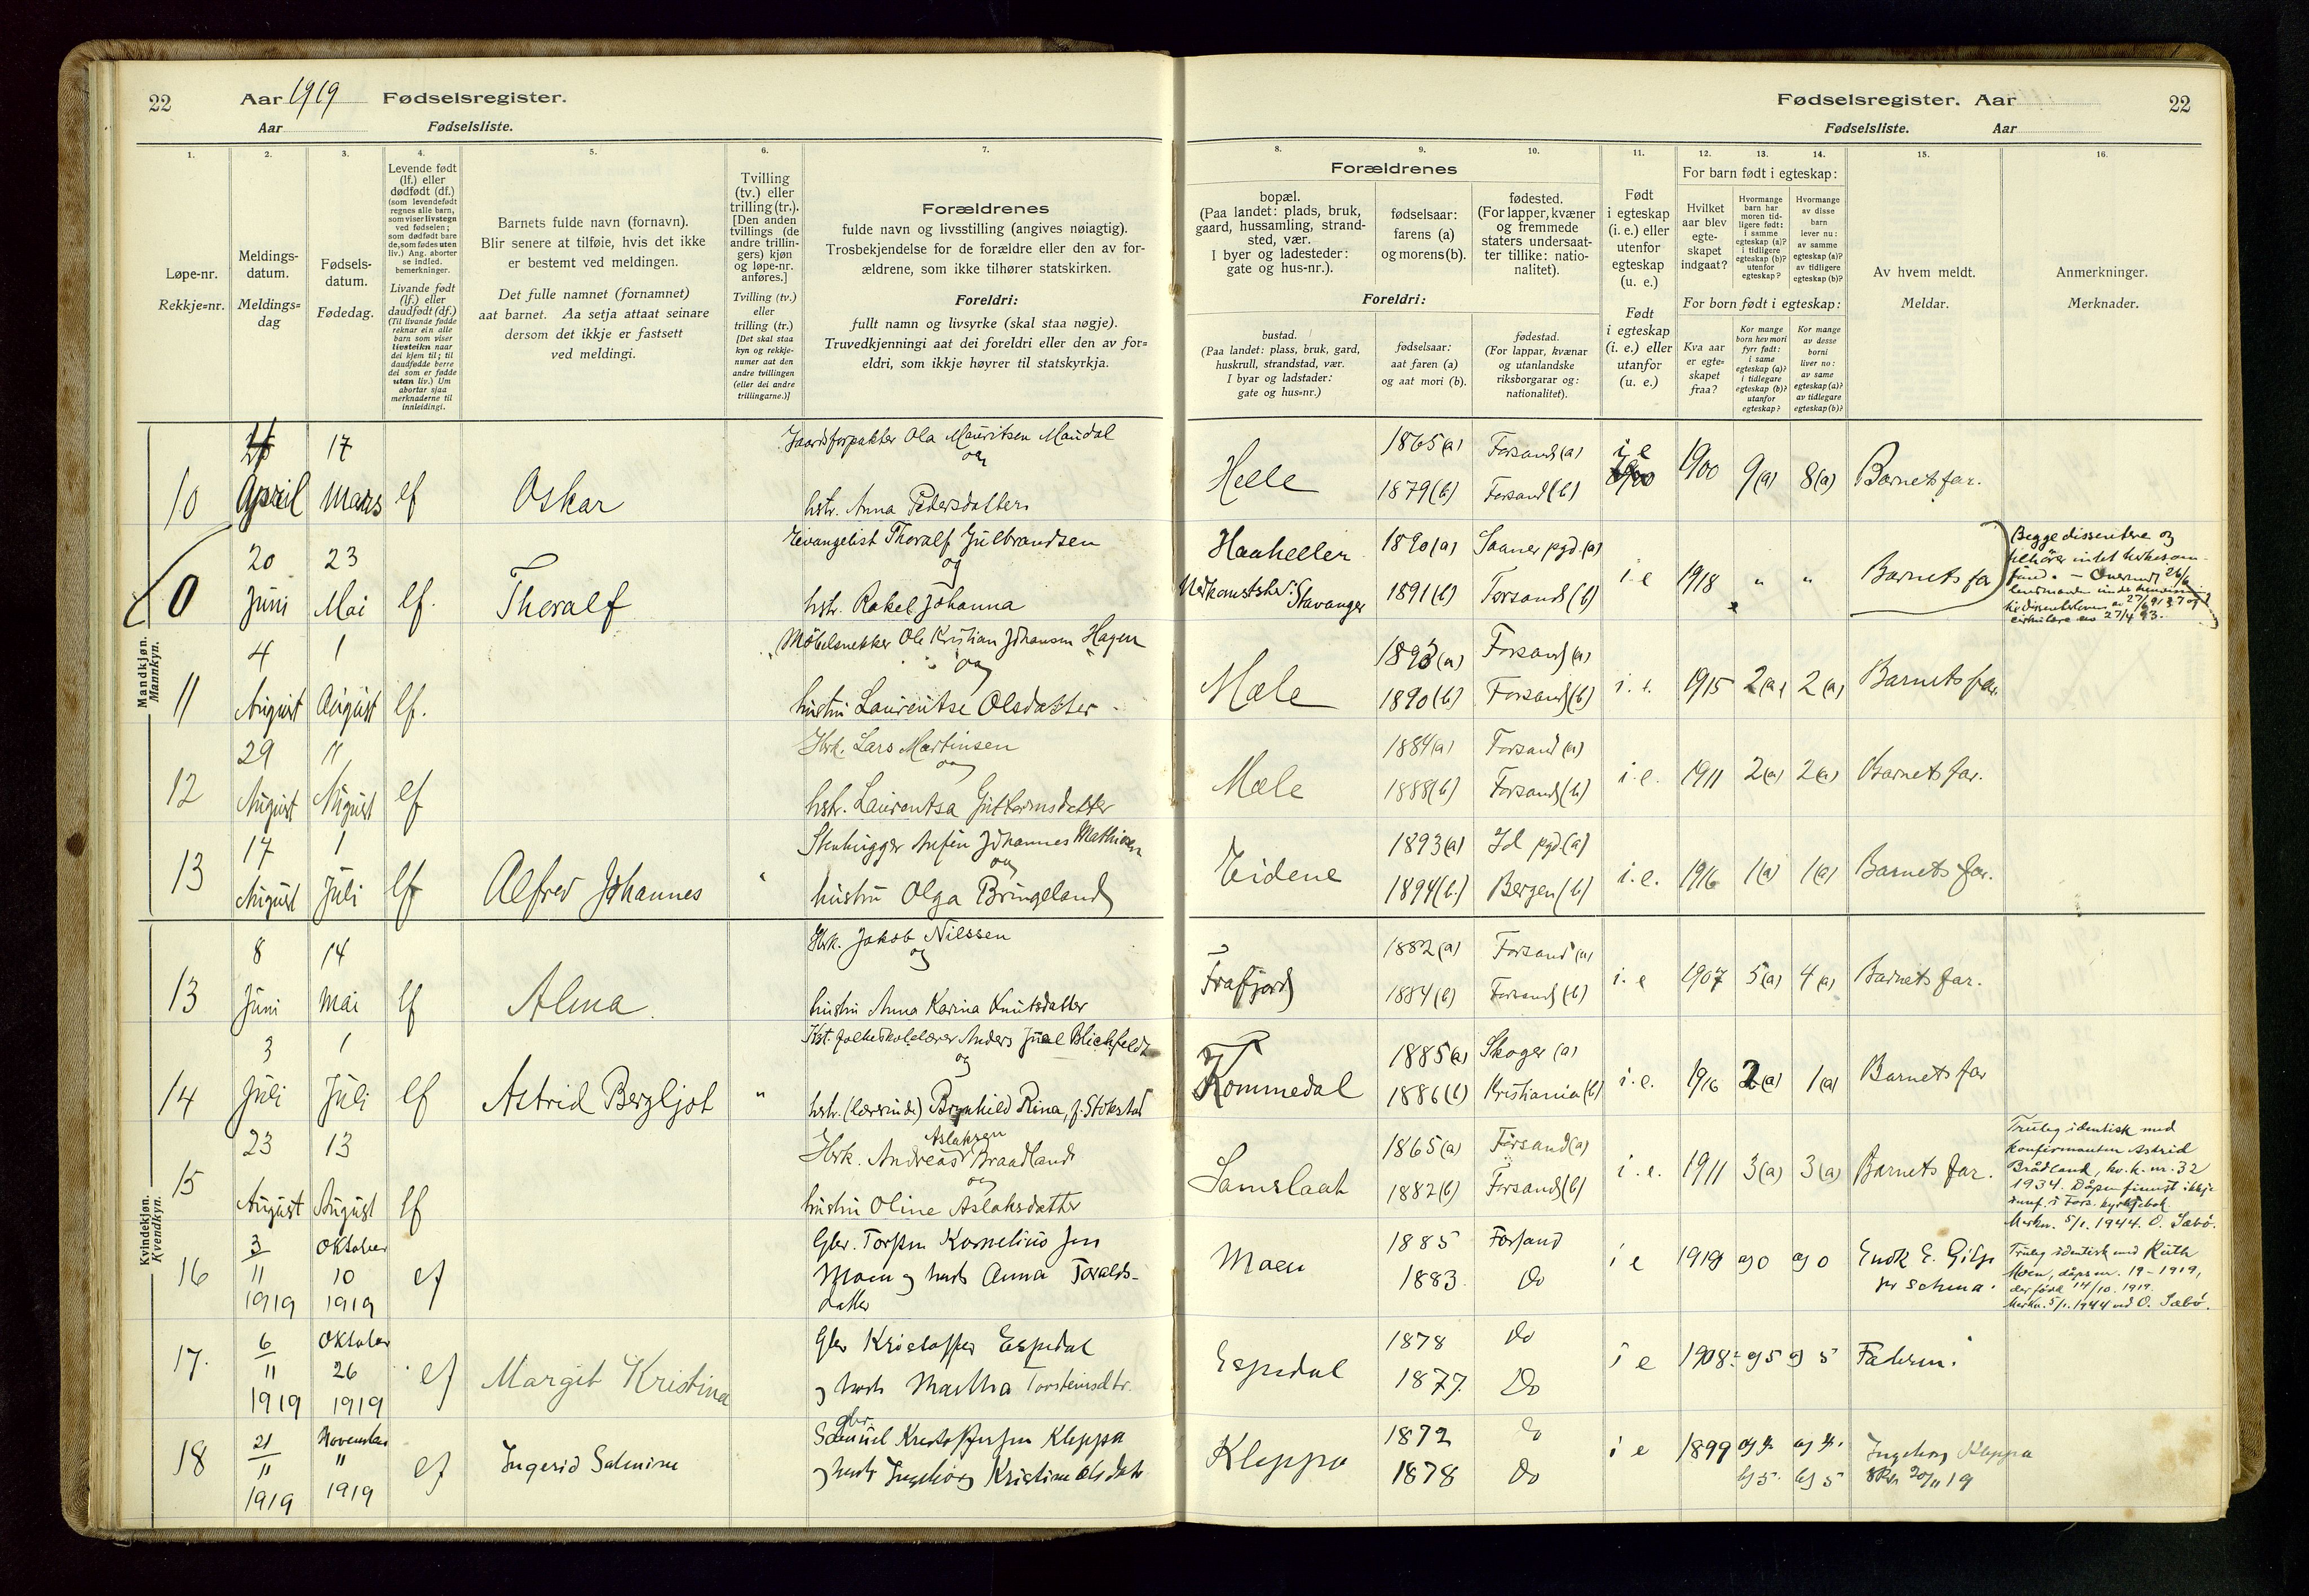 22
Aar 1919 Fødselsregister.
Aar Fødselsliste.
Fødselsregister. Aar
22
Fødselsliste. Aar
1.
Løpe-nr.
Rekkje=nr.
2.
Meldings-
datum.
Meldings=
dag
3.
Fødsels-
datum.
Fødedag.
4.
Levende født
(lf.) eller
dødfødt (df.)
(som levendefødt
regnes alle barn,
som viser livstegn
ved fødselen;
som dødfødt bare
de, som fødes uten
liv.) Ang. aborter
se indled.
bemerkninger.
Livande født
(lf.) eller
daudfødt (df.)
(Til livande fødde
reknar ein alle
barn som viser
livsteikn naar
dei kjem til; til
daudfødde berre
dei som er fødde
utan liv.) Um
abortar sjaa
merknaderne til
innleidingi.
5.
Barnets fulde navn (fornavn).
Blir senere at tilføie, hvis det ikke
er bestemt ved meldingen.
Det fulle namnet (fornamnet)
aat barnet. Aa setja attaat seinare
dersom det ikkje er fastsett
ved meldingi.
6.
Tvilling
(tv.) eller
trilling (tr.).
[Den anden
tvillings (de
andre trillin-
gers) kjøn
og løpe-nr.
anføres.]
Tvilling (tv.)
eller
trilling (tr.)
[Det skal staa
kyn og rekkje-
numer aat den
andre tvillingen
(eller dei andre
trillingarne.)]
7.
Forældrenes
fulde navn og livsstilling (angives nøiagtig).
Trosbekjendelse for de forældre eller den av for-
ældrene, som ikke tilhører statskirken.
Foreldri:
fullt namn og livsyrke (skal staa nøgje).
Truvedkjenningi aat dei foreldri eller den av for=
eldri, som ikkje høyrer til statskyrkja.
8.
Forældrenes
bopæl.
(Paa landet: plads, bruk,
gaard, hussamling, strand-
sted, vær.
I byer og ladesteder:
gate og hus-nr.).
Foreldri:
bustad.
(Paa landet: plass, bruk, gard,
huskrull, strandstad, vær.
I byar og ladstader:
gate og hus=nr.)
9.
fødselsaar:
farens (a)
og morens (b).
fødselsaar:
aat faren (a)
og aat mori (b).
10.
fødested.
(For lapper, kvæner
og fremmede
staters undersaat-
ter tillike: natio-
nalitet).
fødestad.
(For lappar, kvænar
og utanlandske
riksborgarar og:
nationalitet).
11.
Født
i egteskap
(i. e.) eller
utenfor
egteskap
(u. e.)
Født
i egteskap
(i. e.) eller
utanfor
(u. e.)
12. 13. 14.
For barn født i egteskap:
Hvilket
aar blev
egte-
skapet
indgaat?
Hvormange
barn har
moren tid-
ligere født:
i samme
egteskap (a)?
i tidligere
egteskap (b)?
utenfor
egteskap?
Hvormange
av disse
barn
lever nu:
av samme
egteskap (a)?
av tidligere
egteskap (b)?
For born født i egteskap:
Kva aar
er egte=
skapet
fraa?
Kor mange
born hev mori
fyrr født:
i same
egteskap (a)?
i tidlegare
egteskap (b)?
utanfor
egteskap?
Kor mange
av desse
borni
liver no:
av same
egteskap (a)?
av tidlegare
egteskap (b)?
15.
Av hvem meldt.
Meldar.
16.
Anmerkninger.
Merknader.
Mandkjøn.
Mannkyn.
10 April 17 Mars lf Oskar
Ola Mauritsen Maudal
og
hstr. Anna Pedersdatter
Helle 1865(a) Forsand(a) i e 1900 9(a) 8(a) Barnets far.
1879(b) Forsand(b)
0 20 Juni 23 Mai lf. Thoralf
Evangelist Thoralf Gulbrandsen
og
hstr. Rakel Johanna
Haaheller 1890(a) Saaner pgd.(a) i e 1918 " " Barnets far
Stavanger 1891(b) Forsand(b)
Begge dissentere og
tilhører intet
11 4 August 1 August lf.
Møbelsnekker Ole Kristian Johansen Hagen
og
hustru Laurentse Olsdatter
Mæle 1893(a) Forsand(a) i. e. 1915 2(a) 2(a) Barnets far.
1890(b) Forsand(b)
12 29 August 11 August lf
Gbrk. Lars Martinsen
og
hstr. Laurentsa Guttormsdatter
Mæle 1884(a) Forsand(a) i. e. 1911 2(a) 2(a) Barnets far.
1888(b) Forsand(b)
13 17 August 1 Juli lf Alfred Johannes "
Stenhugger Johannes Mathisen
og
hustru Olga Bringeland
Eidene 1893(a) Id pgd(a) i. e. 1916 1(a) 1(a) Barnets far.
1894(b) Bergen(b)
Kvindekjøn.
Kvendkyn.
13 8 Juni 14 Mai lf Alma
Gbrk. Jakob Nilssen
og
hustru Anna Karina Knutsdatter
Frafjord 1882(a) Forsand(a) i. e 1907 5(a) 4(a) Barnets far.
1884(b) Forsand(b)
14 3 Juli 1 Juli lf Astrid Bergljot "
Kst. folkeskolelærer Anders Juel Blichfeldt
og
hstr. (lærerinde) Brynhild Rina, f. Stokstad
Kommedal 1885(a) Skoger(a) i. e. 1916 2(a) 1(a) Barnets far
1886(b) Kristiania(b)
15 23 August 13 August lf
Aslaksen
Gbrk. Andreas Braadland
og
hustru Oline Aslaksdatter
Samslaat 1865(a) Forsand(a) i. e. 1911 3(a) 3(a) Barnets far.
1882(b) Forsand(b)
Truleg identisk med
konfirmanten Astrid
Brådland, kv. k. nr. 32
1934. Dåpen finnst ikkje
innf. i Fors. kyrkjebok
Merkn. 5/1. 1944. O. Sæbö.
16 3/11 1919 Oktober 10 1919 lf
Gbr. Torsten Kornelius sen
Moen og hust Anna Toralds-
datter
Moen 1885 Forsand i e 1919 a) 0 a) 0 Endk E.
1883 Do
Truleg identisk med Ruth
Moen, dåpsnr. 19-1919,
der född 14/10. 1919.
Merkn. 5/1. 1944 ved O. Sæbö.
17. 6/11 1919 Oktober 26 1919 lf Margit Kristina
Gbr Kristoffer Espedal
og hust Martha Torsteinsdtr.
Espedal 1878 Do i e 1908 a) 5 a) 5 Faderen.
1877 Do
18 21/11 1919 November 11 1919 lf Ingerid Salmine
gbr.
Samuel Kristoffersen Kleppa
og hust Ingeborg Kristine Olsdatr
Kleppa 1872 Do i e 1899 Ingeborg Kleppa
1878 Do b) 5 b) 5 20/11 19